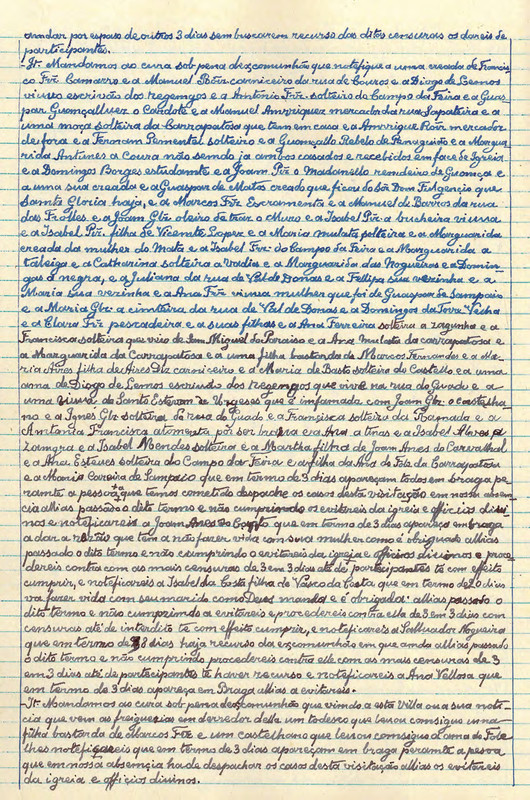 andar por espaso de outros 3 dias sem buscarem recurso das ditas censuras os dareis de
participantes.
-It. Mandamos ao cura sob pena de excomunhão que notefique a uma creada de Francis
co Frz Camarro e a Manuel Borr. carniceiro da rua de Couros e a Diogo de Lemos
viuvo escrivão dos regemgos e a Antonio Frz solteiro do Campo da Feira e a Guas
par Guomçallvez o Cardote e a Manuel Anrriquez mercador da rua Sapateira e a
uma moça solteira da Carrapatosa que tem em casa e a Anrrique Roiz mercador
de fora e a Fernam Pementel solteiro e a Guomçallo Rebelo de Penaguião e a Margua
rida Antunes a Coura não sendo ja ambos casados e recebidos em face de Igreja
e a Domingos Borges estudante e a Joam Piz o Madanello rendeiro de Guomça e
a uma sua creada e a Guaspar de Matos creado que ficou do Sór Dom Fulgencio que
Samta Gloria haja, e a Marcos Frz Escramenta e a Manuel de Barros da rua
das Frolles e a Joam Glz oleiro de trar o Muro e a Isabel Piz a bucheira viuva
e a Isabel Piz filha de Vicente Lopez e a Maria mulata solteira e a Marguarida
creada da mulher do Mata e a Isabel Frz do Campo da Feira e a Marguarida a
taleiga e a Catharina solteira a Vadia e a Marguarida das Nogueiras e a Domin
gas a negra, e a Juliana da rua de Val de Donas e a Fellipa sua vezinha e a
Maria sua vezinha e a Ana Frz viuva mulher que foi de Guaspar de Sampaio
e a Maria Glz a cimteira da rua de Val de Donas e a Domingas da Torre Velha
e a Clara Piz pescadeira e a suas filhas e a Ana Ferreira solteira a zaguinha e a
Francisca solteira que vive de Sam Miguel do Paraiso e a Ana Mulata da carrapatosa e
a Marguarida da Carrapatosa e a uma filha bastarda de Marcos Fernandes e a Ma
ria Aires filha de Aires Dias carniceiro e a Maria de Basto solteira do Castello e a uma
ama de Diogo de Lemos escrivão dos regemgos que vive na rua do Guado e a
uma viuva de Santo Estevam de Urgeses que é infamada com Joam Glz o castelha
no e a Ines Glz solteira da rua do Guado e a Francisca solteira da Ramada e a
Antonia Francisca atameita por ser e a Isabel Alvres
Lamgra e a Isabel Mendes solteira e a Martha filha de Joam Anes do Carvalhal
e a Ana Esteves solteira do Campo da Feira e a filha da Ana de Fole da Carrapatosa
e a Maria Correira de Sampaio que em termo de 3 dias apareçam todos em braga pe
ramte a pessoa a que temos cometido despache os casos desta visitação em nossa absen
cia allias passado o dito termo e não cumprindo os evitareis da igreja e officios divi
nos e notefiqueis a Joam Anes do Couto que em termo de 3 dias apareça em braga
a dar a rezão que tem a não fazer vida com sua mulher como é obriguado allias
passado o dito termo e não cumprindo o evitareis da igreja e officios divinos e proce
dereis contra com as mais censuras de 3 em 3 dias até de participantes té com efeito
cumprir, e notefiqueis a Isabel da Costa filha de Vasco da Costa que em termo de 20 dias
va fazer vida com seu marido como Deus manda e é obrigada allias passado o
dito termo e não cumprindo a evitareis e procedereis contra ella de 3 em 3 dias com
censuras até de interdito té com effeito cumprir, e notefiqueis a Sallvador Nogueira
que em termo de 8 dias haja recurso da excomunhão em que anda allias passado
o dito termo e não cumprindo procedereis contra elle com as mais censuras de 3
em 3 dias até de participantes té haver recurso e notefiqueis a Ana Vellosa que
em termo de 3 dias apareça em Braga allias a evitareis.
-It. Mandamos ao cura sob pena de excomunhão que vimdo a esta villa ou a sua note
cia que vem as freiguezias em derredor della um todesco que levou comsigo uma
filha bastarda de Marcos Frz e um castelhano que levou comsigo a ama do Fole
lhes notefiqueis que em termo de 3 dias apareçam em braga peramte a pesoa
que em nossa absemcia ha de despachar os casos desta visitação allias os evitareis
da igreia e officios divinos.